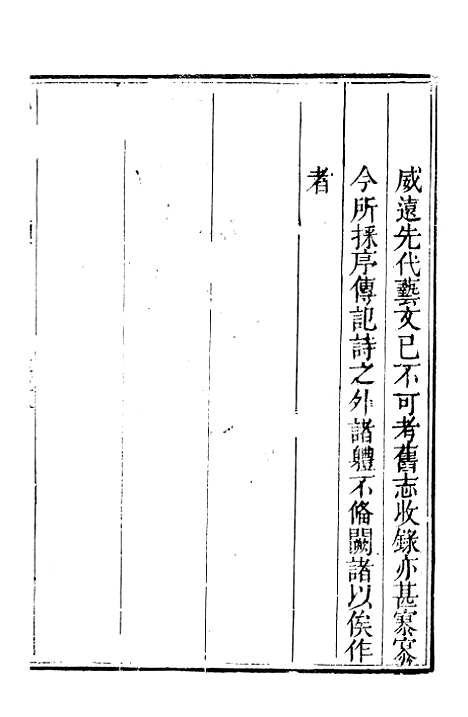 威遠先代藝文已不可考舊志收錄亦甚寥寥
今所採序傳記詩之外諸軆不俻闕諸以俟作
者